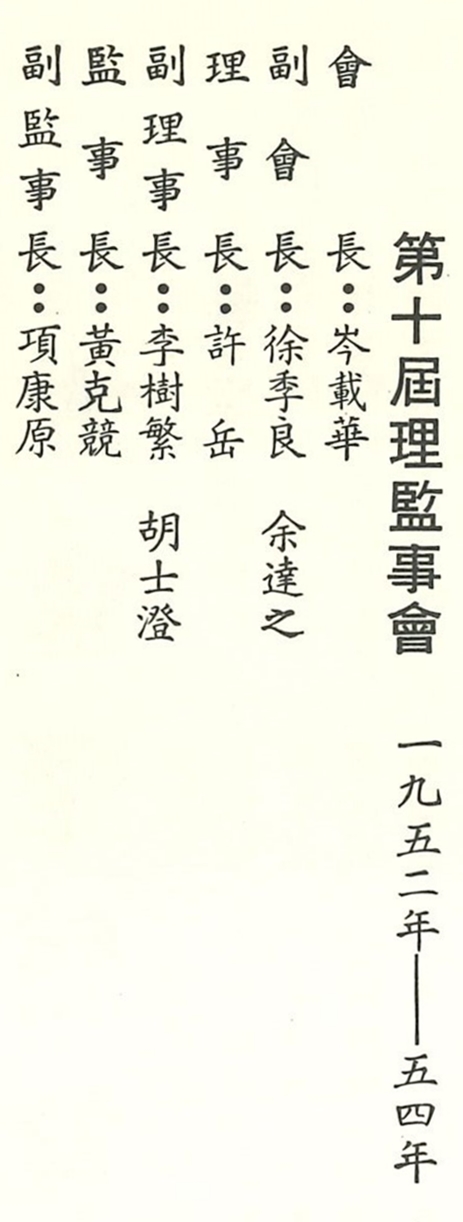 第十屆理監事會 一九五二年——五四年
會長：岑載華
副會長：徐季良 余達之
理事長：許岳
副理事長：李樹繁 胡士澄
監事長：黃克競
副監事長：項康原